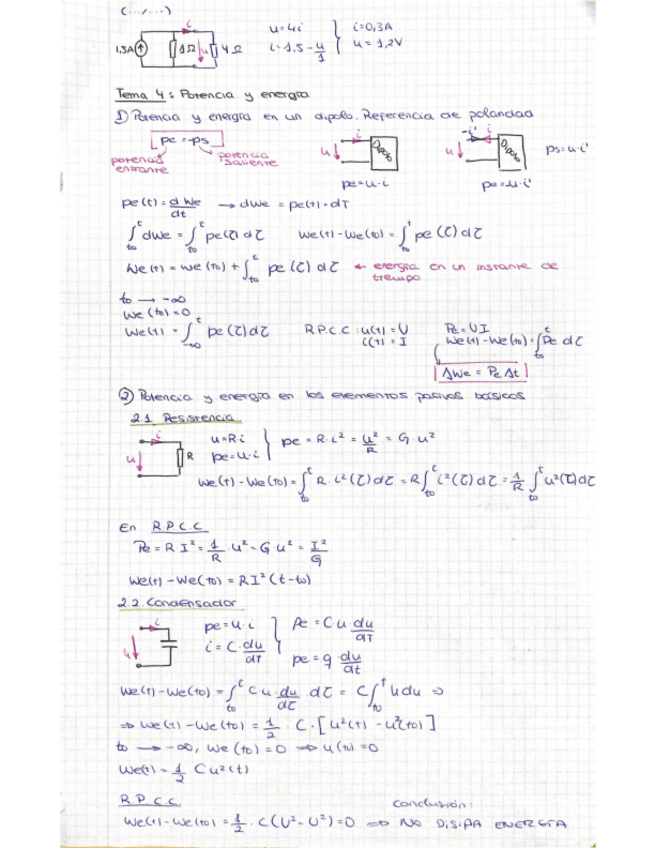 (.../...)
i
1,5A 1Ω u 4Ω
u=4i
i=1,5-u/1
i=0,3A
u=1,2V
Tema 4: Potencia y energía
1) Potencia y energía en un dipolo. Referencia de polaridad
pe=-ps
potencia entrante
potencia saliente
u i Dipolo
pe=u·i
u -i' i Dipolo
pe=-u·i'
ps=u·i'
pe(t)=dWe/dt → dWe=pe(t)·dt
∫t0^t dWe=∫t0^t pe(τ)dτ We(t)-We(t0)=∫t0^t pe(τ)dτ
We(t)=We(t0)+∫t0^t pe(τ)dτ ← energía en un instante de tiempo
t0 → -∞
We(t0)=0
We(t)=∫-∞^t pe(τ)dτ R.P.C.C: u(t)=U i(t)=I Pe=UI
We(t)-We(t0)=∫t0^t Pe dτ
ΔWe=PeΔt
2) Potencia y energía en los elementos pasivos básicos
2.1 Resistencia
i u R
u=Ri
pe=u·i
pe=R·i²=u²/R=G·u²
We(t)-We(t0)=∫t0^t R·i²(τ)dτ=R∫t0^t i²(τ)dτ=1/R∫t0^t u²(τ)dτ
En R.P.C.C
Pe=RI²=1/R·U²=G·U²=I²/G
We(t)-We(t0)=RI²(t-t0)
2.2 Condensador
i u
pe=u·i
i=C·du/dT
pe=Cu·du/dT
pe=q·du/dt
We(t)-We(t0)=∫t0^t Cu·du/dτ·dτ=C∫t0^t udu ⇒
⇒ We(t)-We(t0)=1/2·C·[u²(t)-u²(t0)]
t0 → -∞, We(t0)=0 ⇒ u(t0)=0
We(t)=1/2 Cu²(t)
R.P.C.C. Conclusión:
We(t)-We(t0)=1/2·C(U²-U²)=0 ⇒ NO DISIPA ENERGÍA